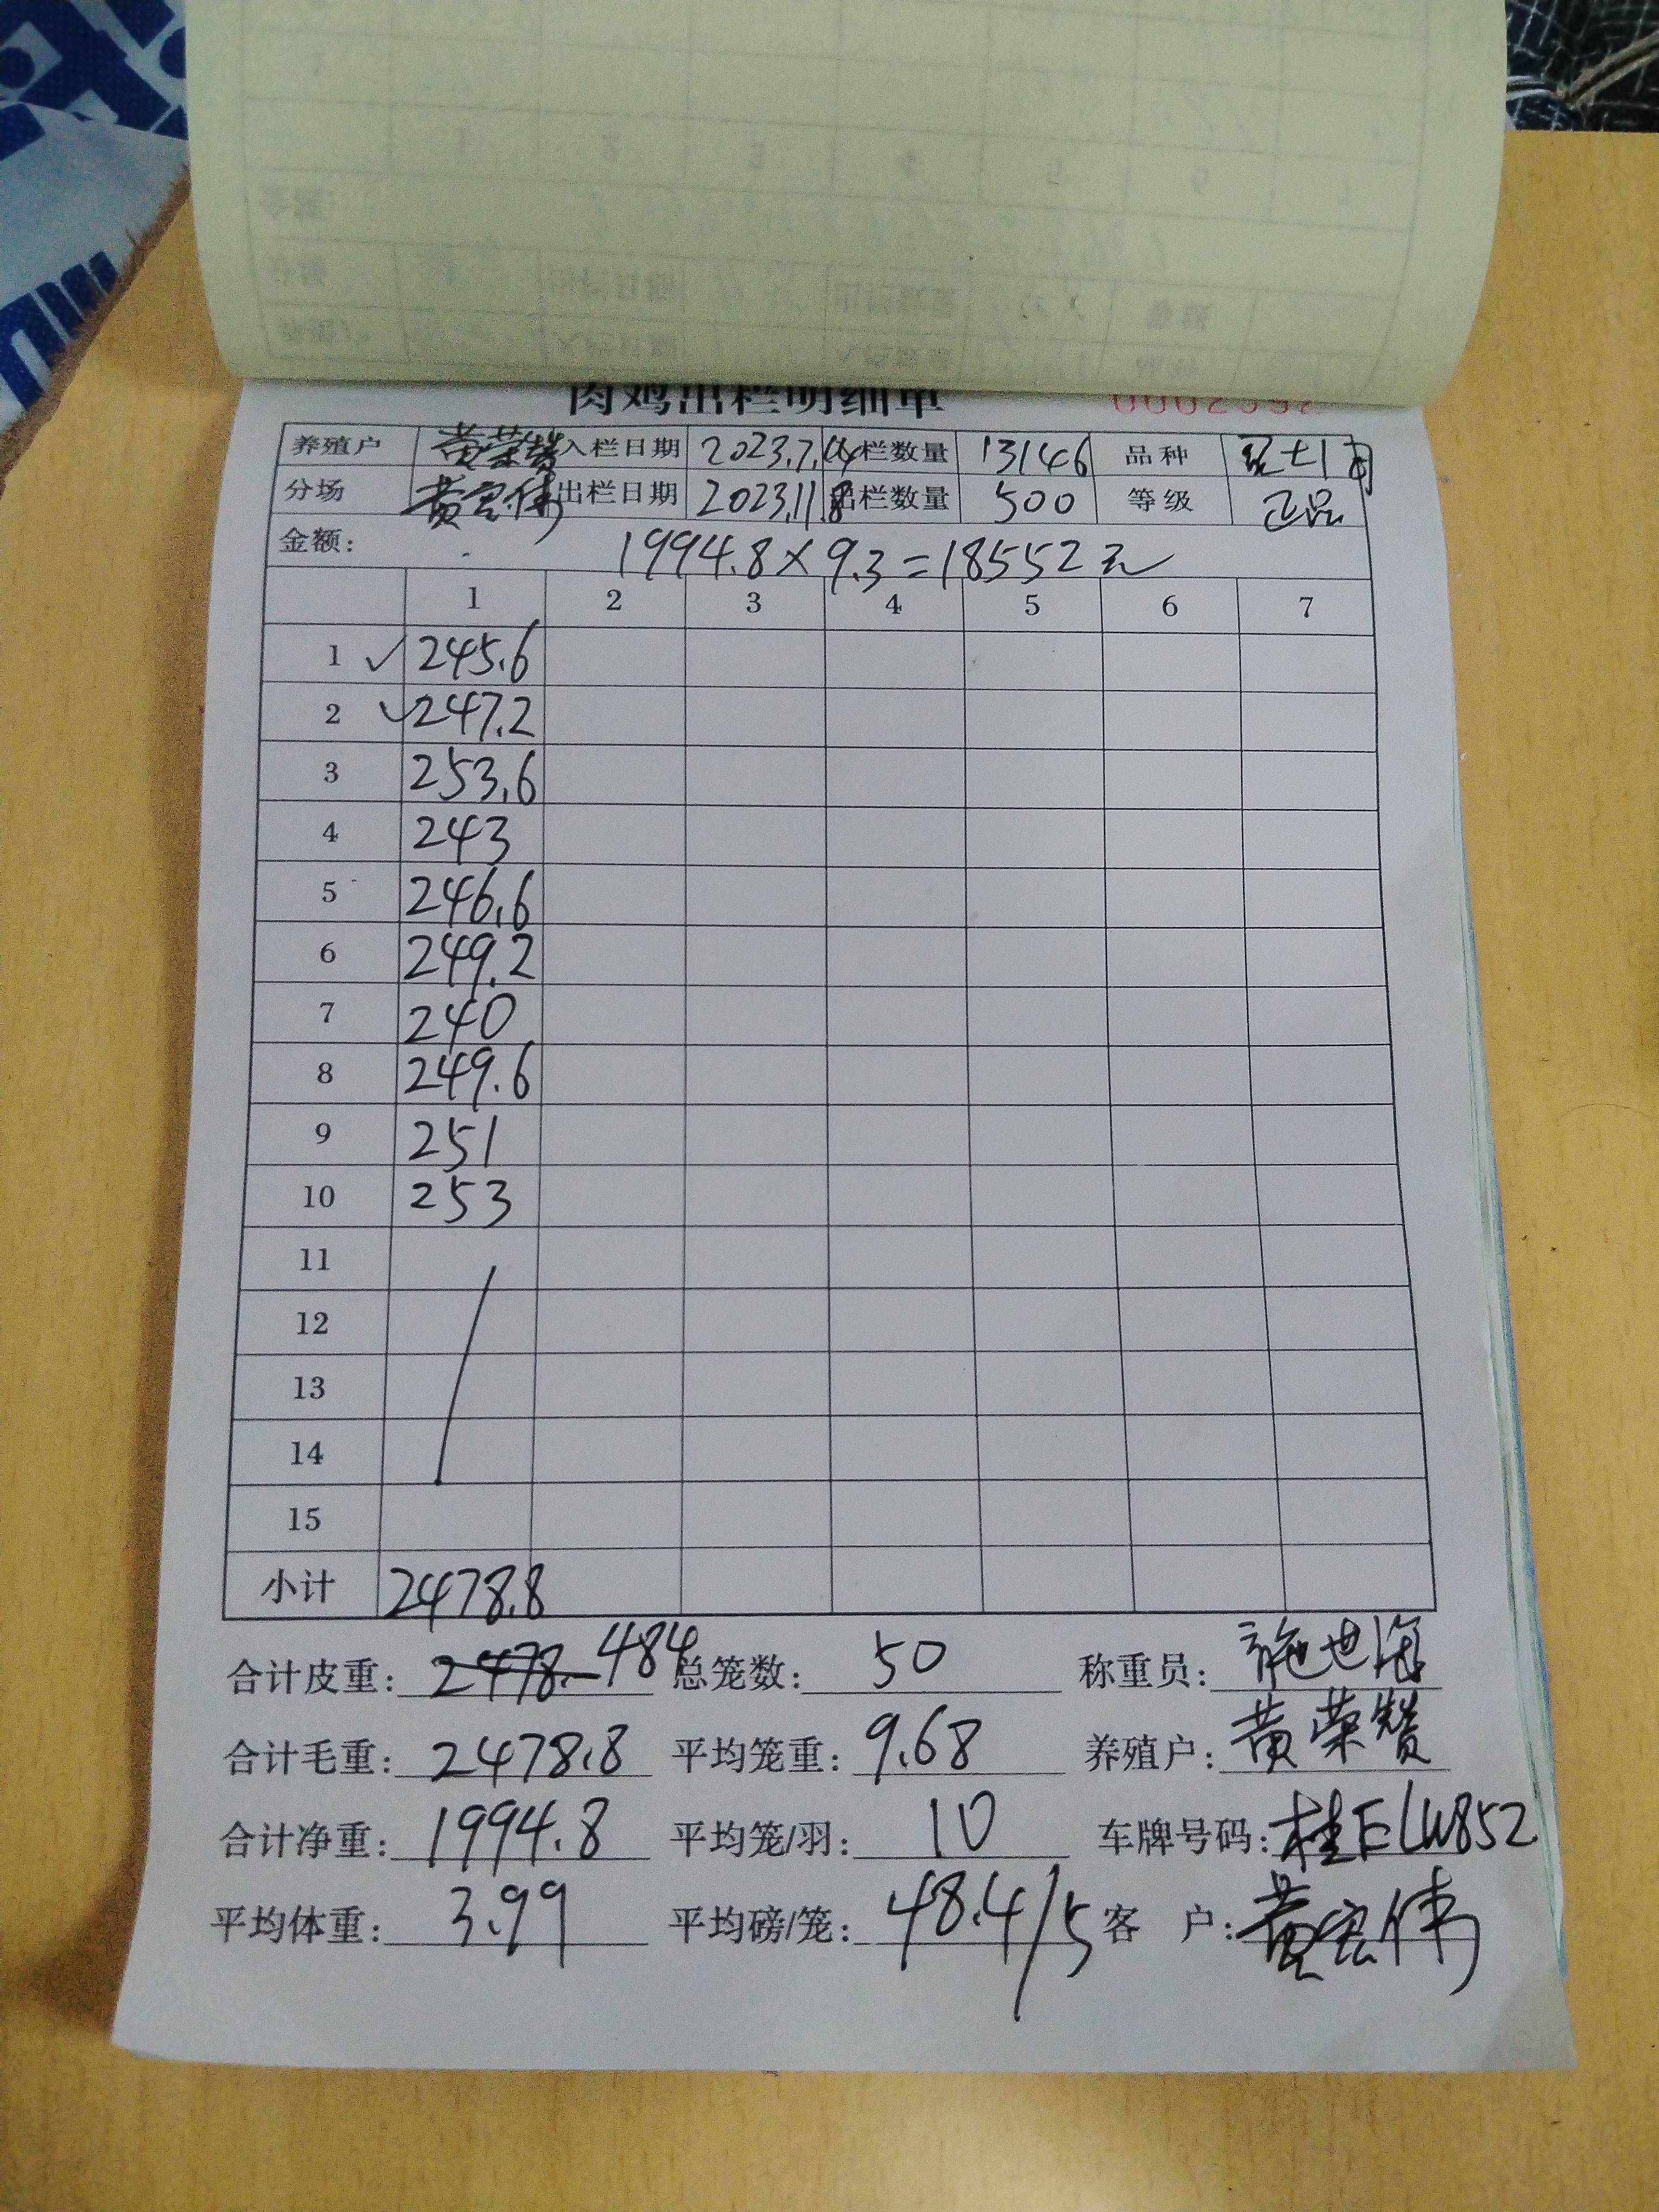 肉鸡出栏明细单 0002592
养殖户 黄荣赞 入栏日期 2023.7.14 入栏数量 13146 品种 土1
分场 黄宏伟 出栏日期 2023.11.8 出栏数量 500 等级 正品
金额: 1994.8×9.3=18552元
1 2 3 4 5 6 7
1 ✓ 245.6
2 ✓ 247.2
3 253.6
4 243
5 246.6
6 249.2
7 240
8 249.6
9 251
10 253
11
12
13
14
15
小计 2478.8
合计皮重: 2478. 484 总笼数: 50 称重员: 施世海
合计毛重: 2478.8 平均笼重: 9.68 养殖户: 黄荣赞
合计净重: 1994.8 平均笼/羽: 10 车牌号码: 桂ELW852
平均体重: 3.99 平均磅/笼: 48.4/5 客 户: 黄宏伟